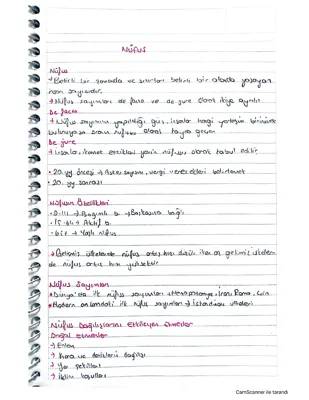 NÜFUS
Nüfus
→ Belirli bir zamanda ve sınırları belirli bir alanda yaşayan
insan sayısıdır.
→ Nüfus sayımları de facto ve de jure olarak ikiye ayrılır.
De facto
→ Nüfus sayımının yapıldığı gün insanlar hangi yerleşim biriminde
bulunuyorsa oranın nüfusu olarak kayda geçer.
De jure
→ insanlar, ikamet ettikleri yerin nüfusu olarak kabul edilir
• 20. yy öncesi → Asker sayısını, vergi verecekleri belirlemek
• 20. yy sonrası
Nüfusun Özellikleri
• 0-14 → Bağımlı → Başkasına bağlı
• 15-64 → Aktif
• 65+ → Yaşlı Nüfus
→ Gelişmiş ülkelerde nüfus artış hızı düşük iken az gelişmiş ülkelerde
de nüfus artış hızı yüksektir
Nüfus Sayımları
• Dünya'da ilk nüfus sayımları → Mezopotamya, İran, Roma, Çin
• Modern anlamdaki ilk nüfus sayımları → İskandinav ülkeleri
Nüfus Dağılışlarını Etkileyen Etmenler
Doğal Etmenler
→ Enlem
→ Kara ve denizlerin dağılışı
→ Yer şekilleri
→ İklim koşulları
CamScanner ile tarandı